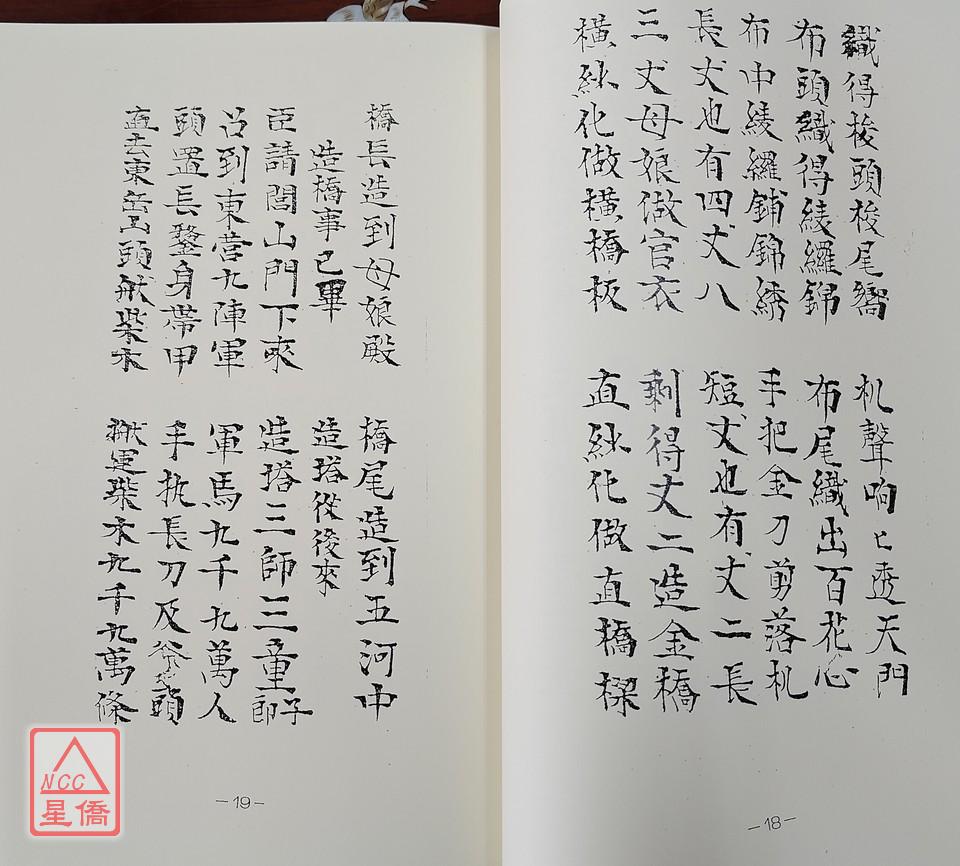 織得梭頭梭尾嚮 机聲响匕透天門
布頭織得綾羅錦 布尾織出百花心
布中綾羅鋪錦綉 手把金刀剪落机
長丈也有四丈八 短丈也有丈二長
三丈母娘做官衣 剩得丈二造金橋
橫紗化做橫橋板 直紗化做直橋樑
—18—
橋長造到母娘殿 橋尾造到五河中
造橋事已畢 造塔從後來
臣請閭山門下來 造塔三師三童子郎
召到東營九陣軍 軍馬九千九萬人
頭置長鍪身帶甲 手执長刀及斧頭
直去東岳山頭搬柴木 搬運柴木九千九萬條
—19—
NCC
星僑